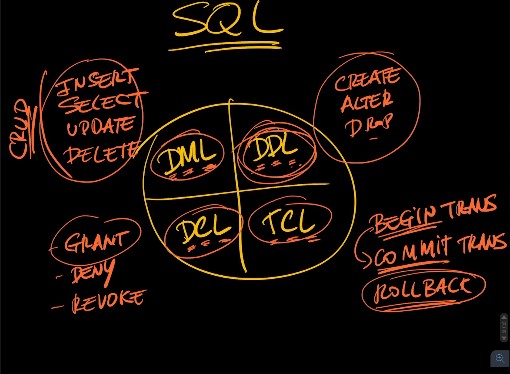 SQL
CRUD
INSERT
SELECT
UPDATE
DELETE
CREATE
ALTER
DROP
DML
DDL
DCL
TCL
- GRANT
- DENY
- REVOKE
BEGIN TRANS
COMMIT TRANS
ROLLBACK